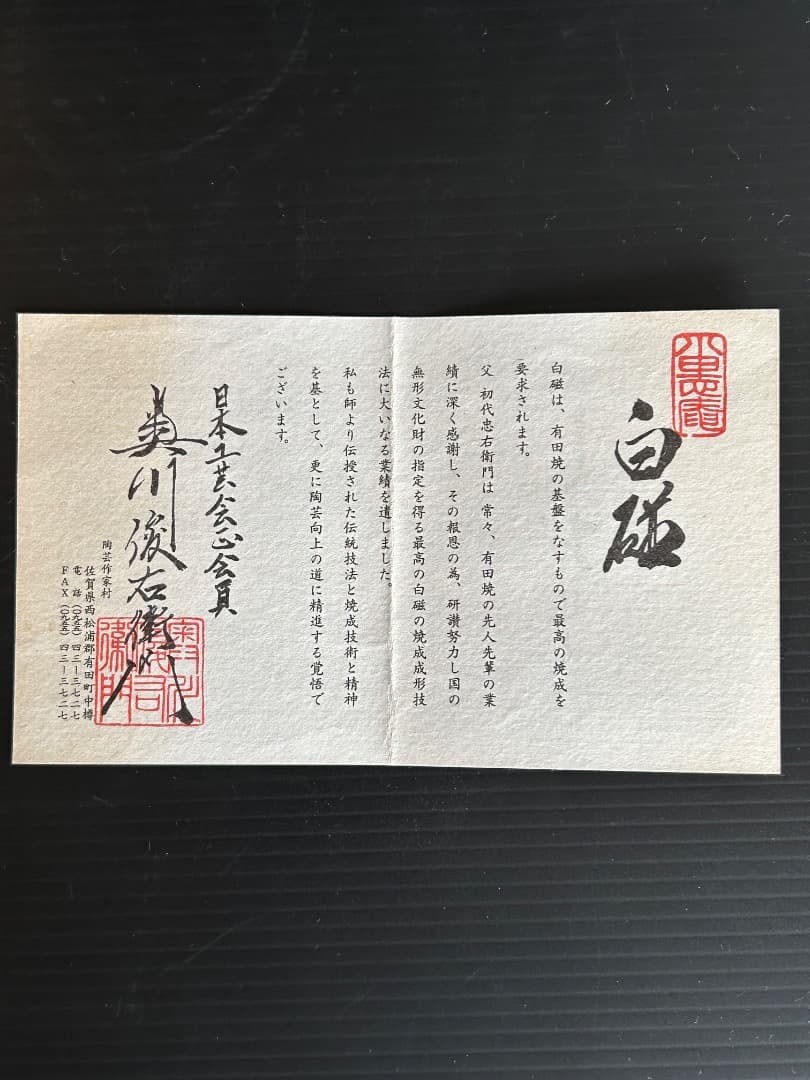 白磁
白磁は、有田焼の基盤をなすもので最高の焼成を
要求されます。
父 初代忠右衛門は 常々、有田焼の先人先輩の業
績に深く感謝し、その報恩の為、研讃努力し国の
無形文化財の指定を得る最高の白磁の焼成成形技
法に大いなる業績を遺しました。
私も師より伝授された伝統技法と焼成技術と精神
を基として、更に陶芸向上の道に精進する覚悟で
ございます。
日本工芸会正会員
川俊右衛門
陶芸作家村
佐賀県西松浦郡有田町中樽
電話(〇九五五)四三ー三七二七
FAX(〇九五五)四三ー三七二七